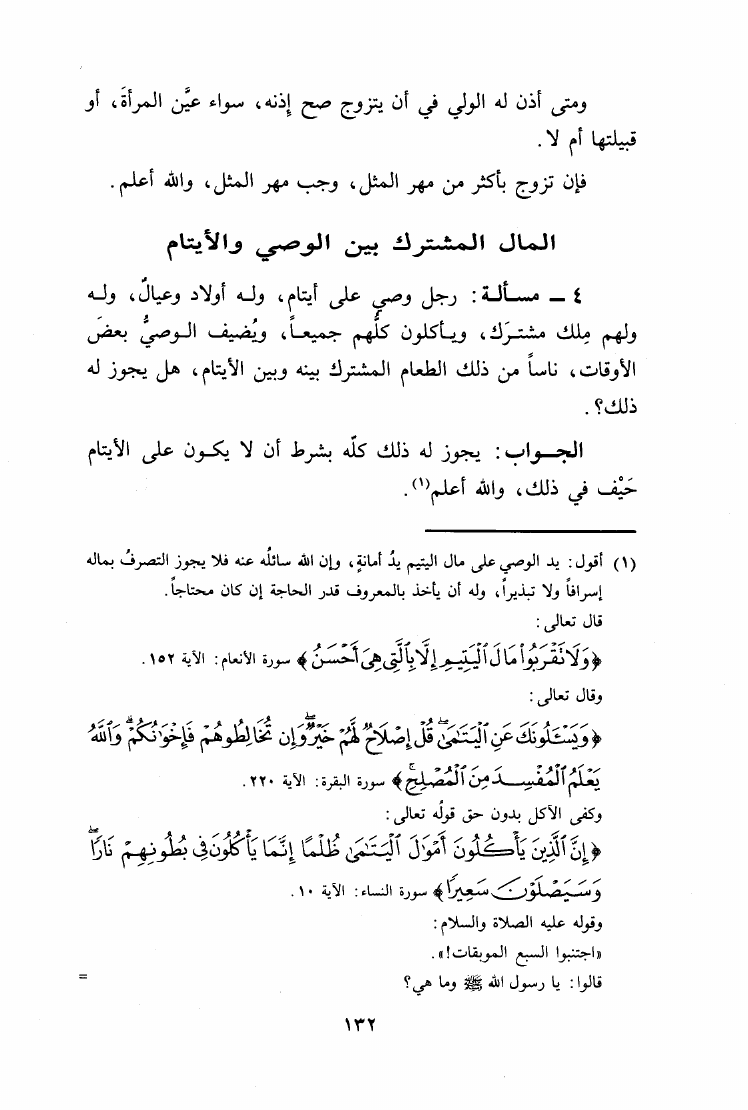 ومتى أذن له الولي في أن يتزوج صح إذنه، سواء عيَّن المرأةَ، أو
قبيلتها أم لا.
فإن تزوج بأكثر من مهر المثل، وجب مهر المثل، والله أعلم.
المال المشترك بين الوصي والأيتام
٤ ــ مسألة: رجل وصي على أيتام، وله أولاد وعيالٌ، وله
ولهم مِلك مشترَك، ويأكلون كلُّهم جميعاً، ويُضيف الوصيُّ بعضَ
الأوقات، ناساً من ذلك الطعام المشترك بينه وبين الأيتام، هل يجوز له
ذلك؟.
الجواب: يجوز له ذلك كلّه بشرط أن لا يكون على الأيتام
حَيْف في ذلك، والله أعلم(١).
(١) أقول: يد الوصي على مال اليتيم يدُ أمانةٍ، وإن الله سائلُه عنه فلا يجوز التصرفُ بماله
إسرافاً ولا تبذيراً، وله أن يأخذ بالمعروف قدر الحاجة إن كان محتاجاً.
قال تعالى:
﴿وَلَا نَقْرَبُواْ مَالَ ٱلْيَتِيمِ إِلَّا بِٱلَّتِى هِىَ أَحْسَنُ﴾ سورة الأنعام: الآية ١٥٢.
وقال تعالى:
﴿وَيَسْـَٔلُونَكَ عَنِ ٱلْيَتَـٰمَىٰۖ قُلْ إِصْلَاحٌ لَّهُمْ خَيْرٌۖ وَإِن تُخَالِطُوهُمْ فَإِخْوَٰنُكُمْۚ وَٱللَّهُ
يَعْلَمُ ٱلْمُفْسِدَ مِنَ ٱلْمُصْلِحِۚ﴾ سورة البقرة: الآية ٢٢٠.
وكفى الآكل بدون حق قولُه تعالى:
﴿إِنَّ ٱلَّذِينَ يَأْكُلُونَ أَمْوَٰلَ ٱلْيَتَـٰمَىٰ ظُلْمًا إِنَّمَا يَأْكُلُونَ فِى بُطُونِهِمْ نَارًاۖ
وَسَيَصْلَوْنَ سَعِيرًا﴾ سورة النساء: الآية ١٠.
وقوله عليه الصلاة والسلام:
«اجتنبوا السبع الموبقات!».
قالوا: يا رسول الله ﷺ وما هي؟
=
١٣٢